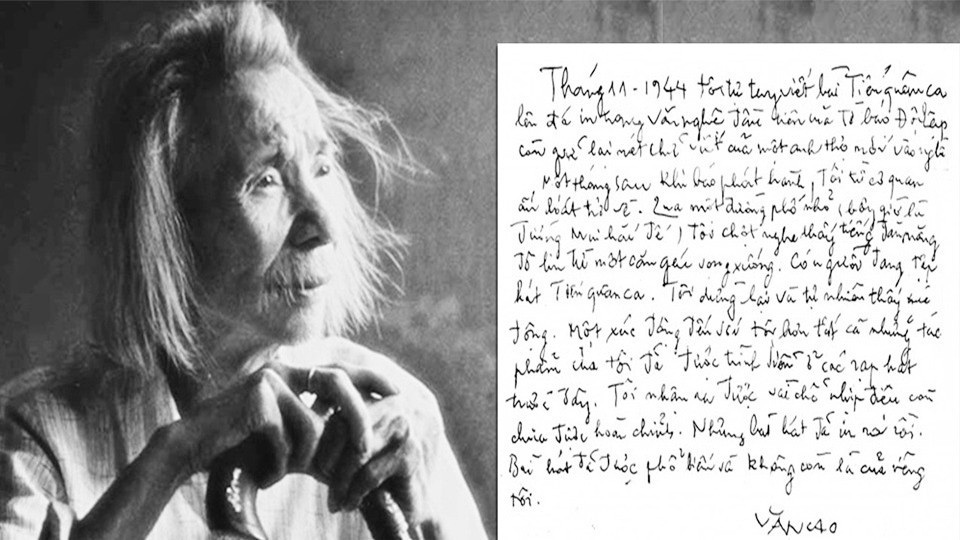 Tháng 11-1944 tôi tự tay viết bài Tiến quân ca
lên đá in trang văn nghệ đầu tiên của tờ báo Độc lập
còn giữ lại nét chữ viết của một anh thợ mới vào nghề
Một tháng sau khi báo phát hành, Tôi từ cơ quan
ấn loát trở về. Qua một đường phố nhỏ (bây giờ là
đường Mai hắc Đế) tôi chợt nghe thấy tiếng đàn măng
đô lin từ một căn gác vọng xuống. Có người đang tập
hát Tiến quân ca. Tôi dừng lại và tự nhiên thấy xúc
động. Một xúc động đến với tôi hơn tất cả những tác
phẩm của tôi đã được trình diễn ở các rạp hát
trước đây. Tôi nhận ra được vài chỗ nhịp điệu còn
chưa được hoàn chỉnh. Nhưng bài hát đã in ra rồi.
Bài hát đã được phổ biến và không còn là của riêng
tôi.
VĂN CAO